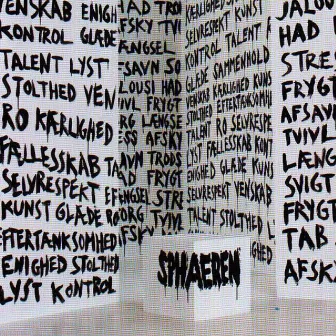 VENSKAB ENIGH
KONTROL GLÆDE
TALENT LYST
STOLTHED VEN
RO KÆRLIGHED
FÆLLESSKAB TA
SELVRESPEKT EF
KUNST GLÆDE RO
EFTERTÆNKSOMHED
ENIGHED STOLTHED
LYST KONTROL
HAD TRO
AFSKY TVI
ÆNGSEL
AFSAVN SO
ALOUSI HAD
IVL FRYGT
RG LÆNGSE
ESS AFSKY
AVN TRODS
FRYGT HAD
ÆNGSEL STRE
SORG TVIVL
KÆRLIGHED LYST
SELVRESPEKT KUNST
KONTROL TALENT
GLÆDE SAMMENHOLD
VENSKAB KÆRLIGHED KUNS
STOLTHED EFTERTÆNKSOMH
TALENT RO SELVRESPE
LYST FÆLLESSKAB KONT
ENIGHED GLÆDE KUNS
SELVRESPEKT VENSKAB
TALENT STOLTHED L
GHED
JALOU
HAD
STRES
FRYGT
AFSAV
TVIVL
LÆNG
SVIGT
FRYGT
TAB
AFSK
SPHAEREN